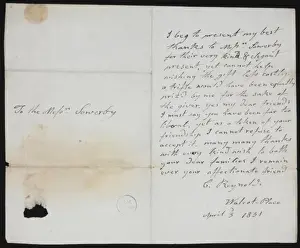 To the Messrs Sowerby
I beg to present my best
thanks to Messrs Sowerby
for their very kind & elegant
present, yet cannot help
wishing the gift less costly
a trifle would have been equally
prized by me for the sake of
the giver. yes my dear friends
I must say you have been far too
liberal, yet as a token of your
friendship I cannot refuse to
accept it, many many thanks
with every kind wish to both
your dear families I remain
ever your affectionate friend
C. Reynolds
Walcot Place
April 3 1831